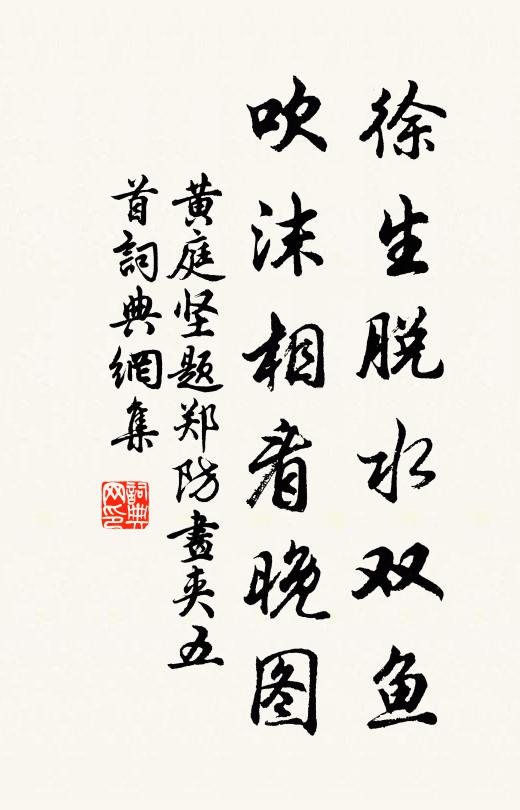 徐生脱水双鱼
吹沫相看晚图
黄庭坚题郑防畫夹五
首詞典網集
詞典
网印